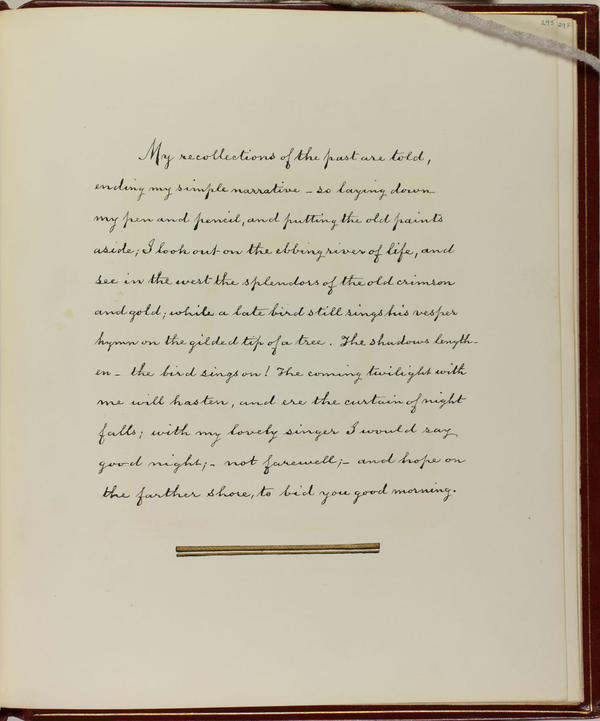 295 297
My recollections of the past are told,
ending my simple narrative – so laying down
my pen and pencil, and putting the old paints
aside; I look out on the ebbing river of life, and
see in the west the splendors of the old crimson
and gold; while a late bird still sings his vesper
hymn on the gilded tip of a tree. The shadows length-
en – the bird sings on! The coming twilight with
me will hasten, and ere the curtain of night
falls; with my lovely singer I would say
good night; – not farewell; – and hope on
the farther shore, to bid you good morning.